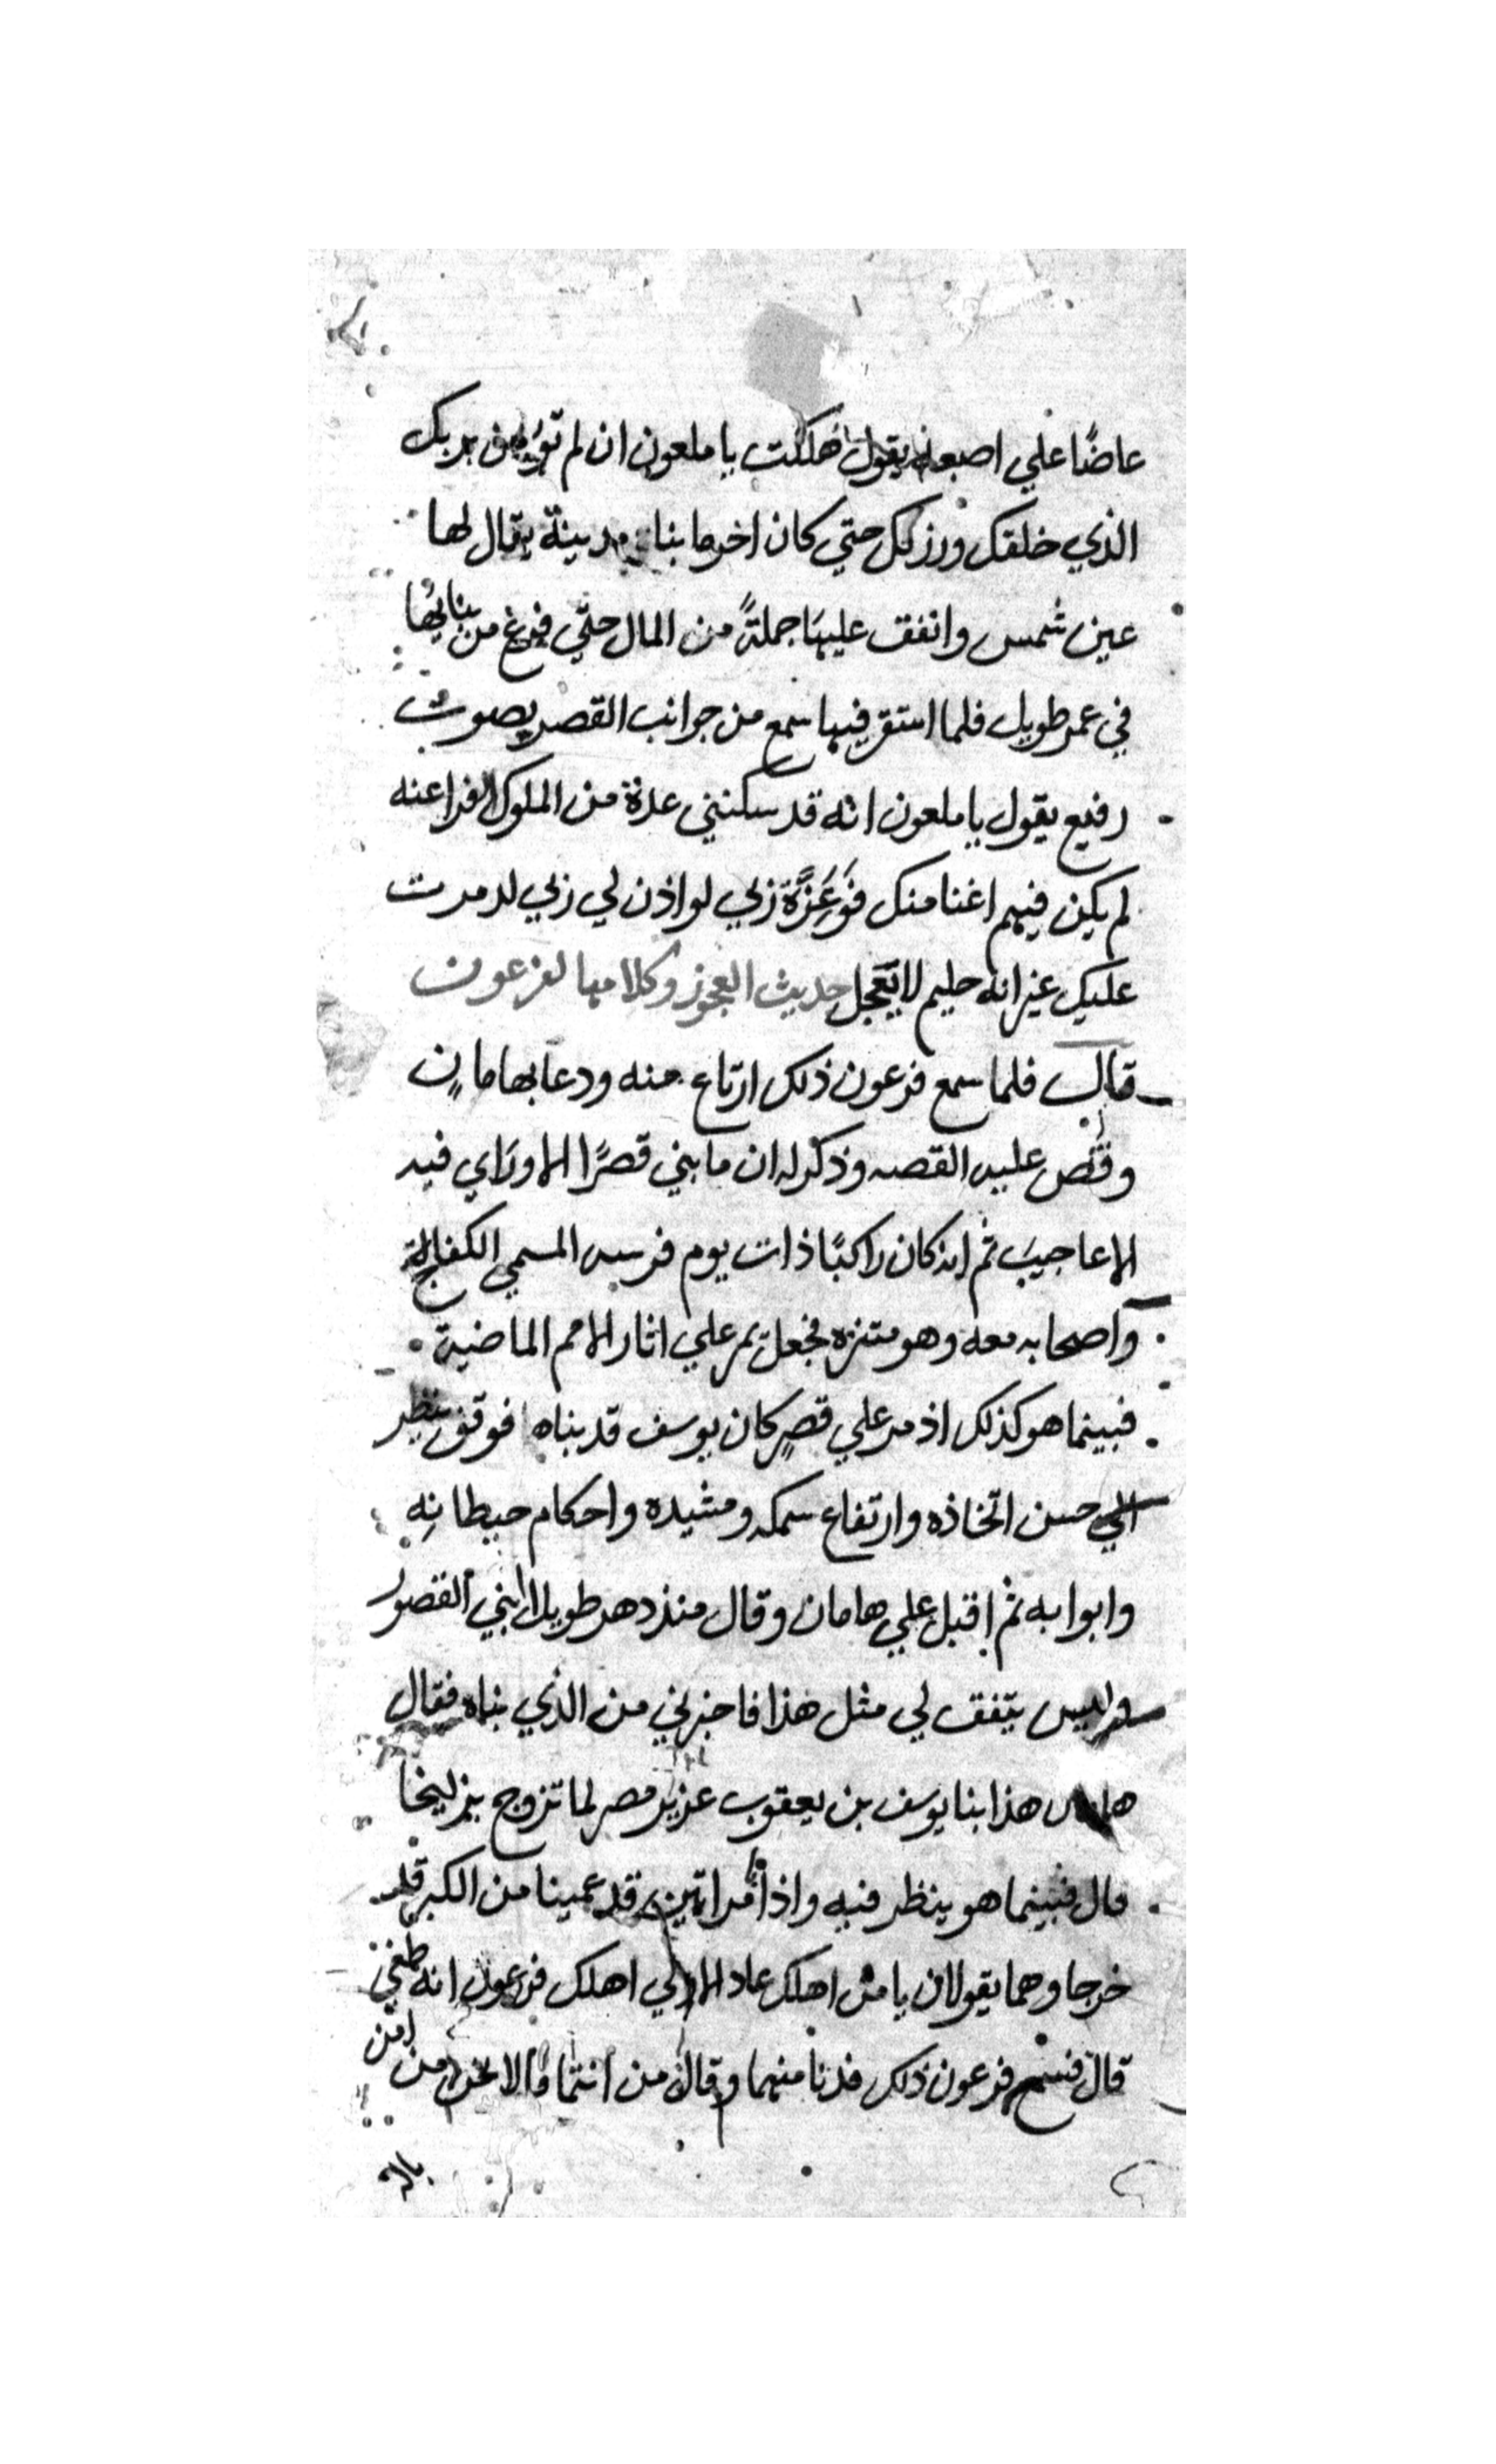 عاضًا علي اصبعه يقول هلكت يا ملعون ان لم تؤمن بربك
الذي خلقك ورزقك حتي كان اخر ما بنا مدينة يقال لها
عين شمس وانفق عليها جملةً من المال حتي فرغ من بنايها
في عمر طويل فلما استقر فيها سمع من جوانب القصر بصوت
رفيع يقول يا ملعون انه قد سكنني عدة من الملوك الفراعنه
لم يكن فيهم اغنا منك فوعزة ربي لو اذن لي ربي لدمرت
عليك غير انه حليم لا يعجل حديث العجوز وكلامها لفرعون
قال فلما سمع فرعون ذلك ارتاع منه ودعا بهامان
وقص عليه القصه وذكر له ان ما بني قصرًا الا وراي فيه
الاعاجيب ثم انه كان راكبًا ذات يوم فرسه المسمي
واصحابه معه وهو متنزه فجعل يمر علي اثار الامم الماضية
فبينما هو كذلك اذ مر علي قصرٍ كان يوسف قد بناه فوقف ينظر
الي حسن اتخاذه وارتفاع سمكه ومشيده واحكام حيطانه
وابوابه ثم اقبل علي هامان وقال منذ دهر طويل ابني القصور
وليس يتفق لي مثل هذا فاخبرني من الذي بناه فقال
هامان هذا بنا يوسف بن يعقوب عزيز مصر لما تزوج بزليخا
قال فبينما هو ينظر فيه واذا مراتين قد عمينا من الكبر قد
خرجا وهما يقولان يا من اهلك عاد الاولي اهلك فرعون انه طغي
قال فسمع فرعون ذلك فدنا منهما وقال من انتما قالا نحن من امن
بالله